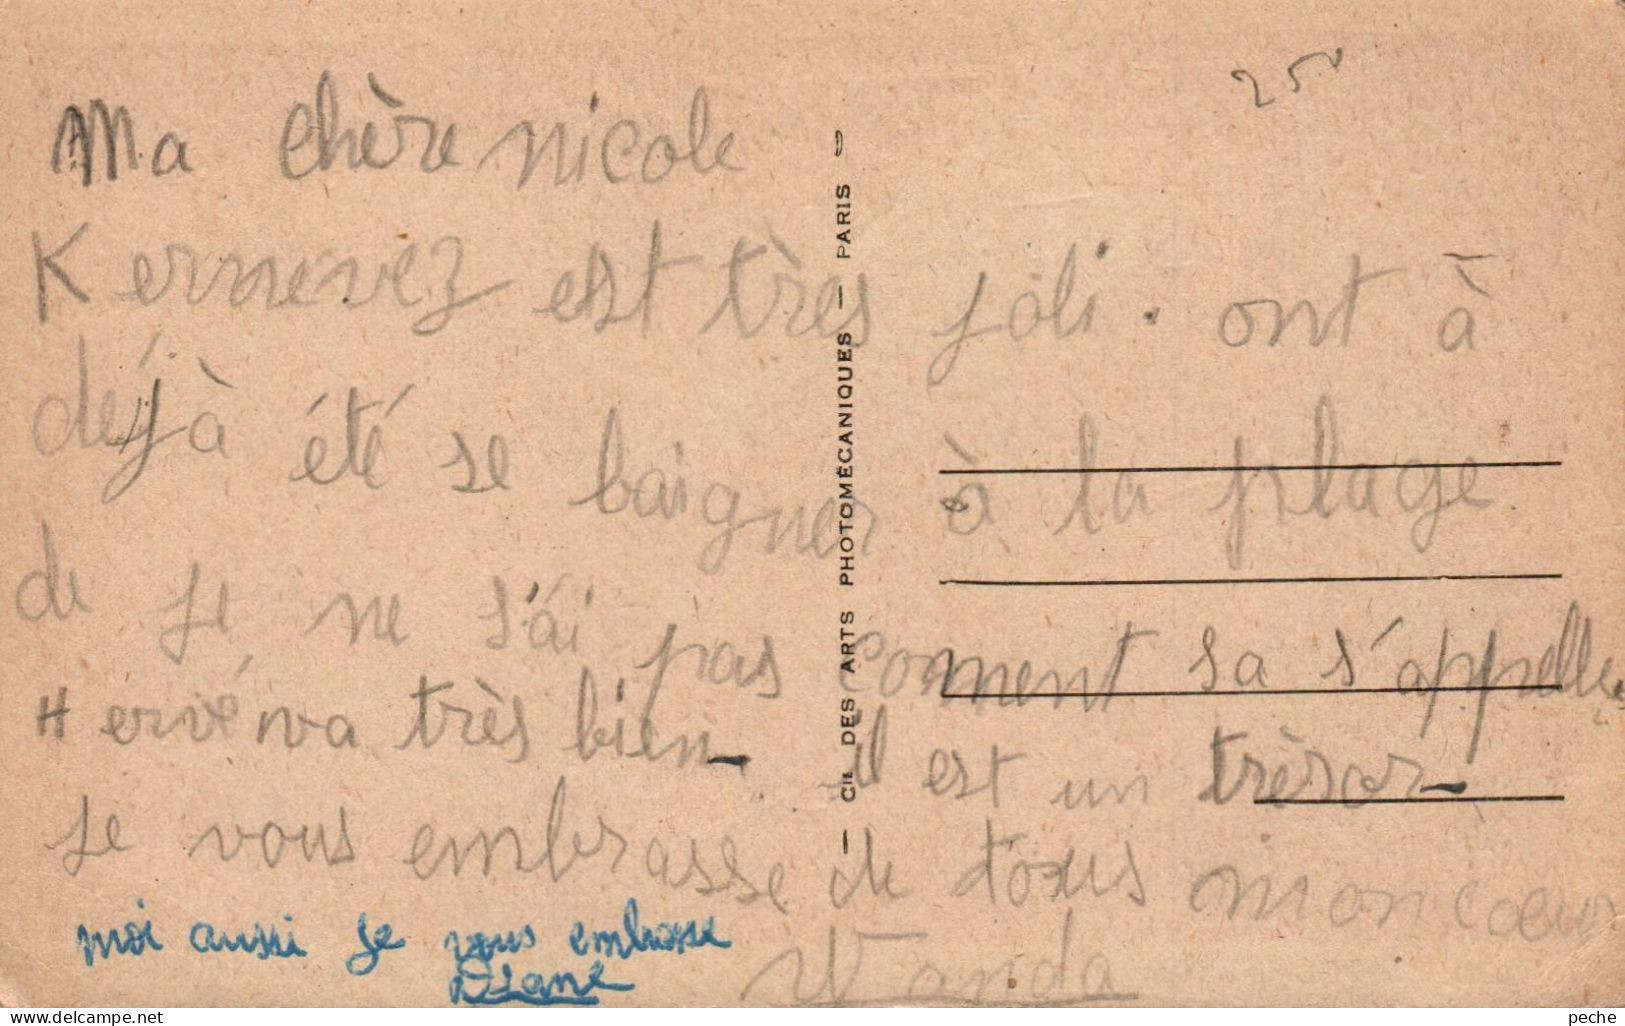 25
Ma chère nicole
Kernevez est très joli. ont à
déjà été se baigner à la plage
de je ne s'ai pas comment sa s'appelle
Hervé va très bien - il est un trèsor -
Je vous embrasse de tous mon coeur
Wanda
moi aussi je vous embrasse
Diane
— CIE DES ARTS PHOTOMÉCANIQUES — PARIS —
delcampe.net
peche